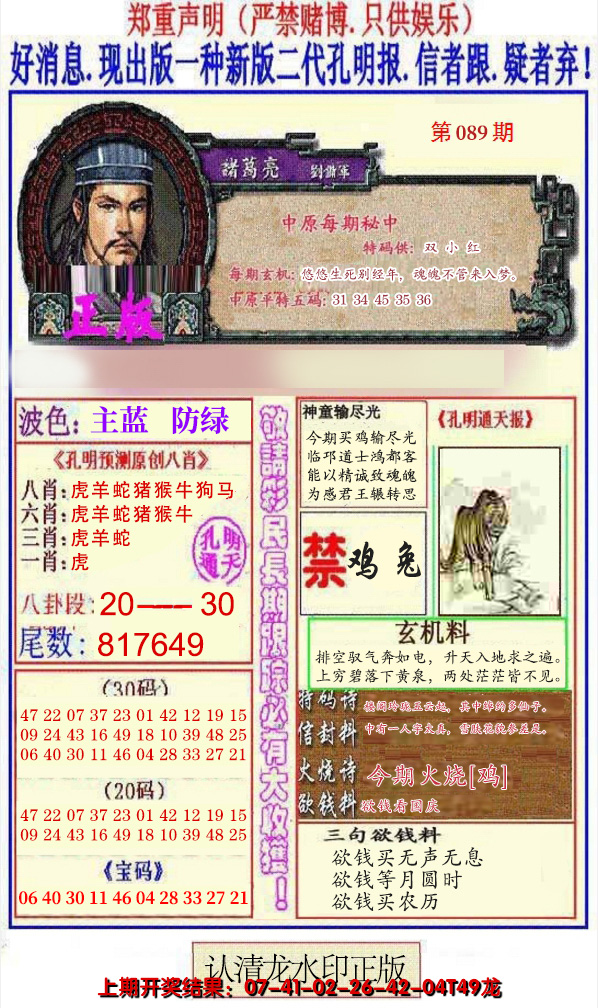 郑重声明（严禁赌博.只供娱乐）
好消息.现出版一种新版二代孔明报.信者跟.疑者弃!
第089期
諸葛亮 劉備軍
中原每期秘中
特码供：双小红
每期玄机：悠悠生死别经年，魂魄不曾来入梦。
中原平特五码：31 34 45 35 36
正版
波色：主蓝 防绿
《孔明预测原创八肖》
八肖：虎羊蛇猪猴牛狗马
六肖：虎羊蛇猪猴牛
三肖：虎羊蛇
一肖：虎
孔明
通天
八卦段：20——30
尾数：817649
敬請彩民長期跟踪必有大收獲！
神童输尽光
今期买鸡输尽光
临邛道士鸿都客
能以精诚致魂魄
为感君王辗转思
《孔明通天报》
禁 鸡 兔
玄机料
排空驭气奔如电，升天入地求之遍。
上穷碧落下黄泉，两处茫茫皆不见。
特码诗 楼阁玲珑五云起，其中绰约多仙子。
信封料 中有一人字太真，雪肤花貌参差是。
火烧诗 今期火烧[鸡]
欲钱料 欲钱看国庆
（30码）
47 22 07 37 23 01 42 12 19 15
09 24 43 16 49 18 10 39 48 25
06 40 30 11 46 04 28 33 27 21
（20码）
47 22 07 37 23 01 42 12 19 15
09 24 43 16 49 18 10 39 48 25
《宝码》
06 40 30 11 46 04 28 33 27 21
三句欲钱料
欲钱买无声无息
欲钱等月圆时
欲钱买农历
认清龙水印正版
上期开奖结果：07-41-02-26-42-04T49龙